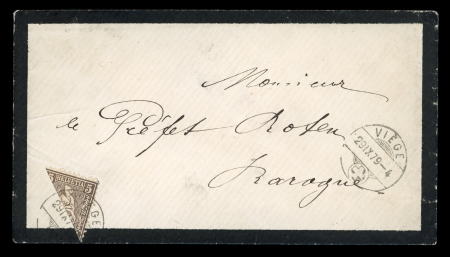 Monsieur
le Préfet Roten
Rarogne
VIÈGE
29 IX 79-4
HELVETIA 5
VIÈGE
29 IX